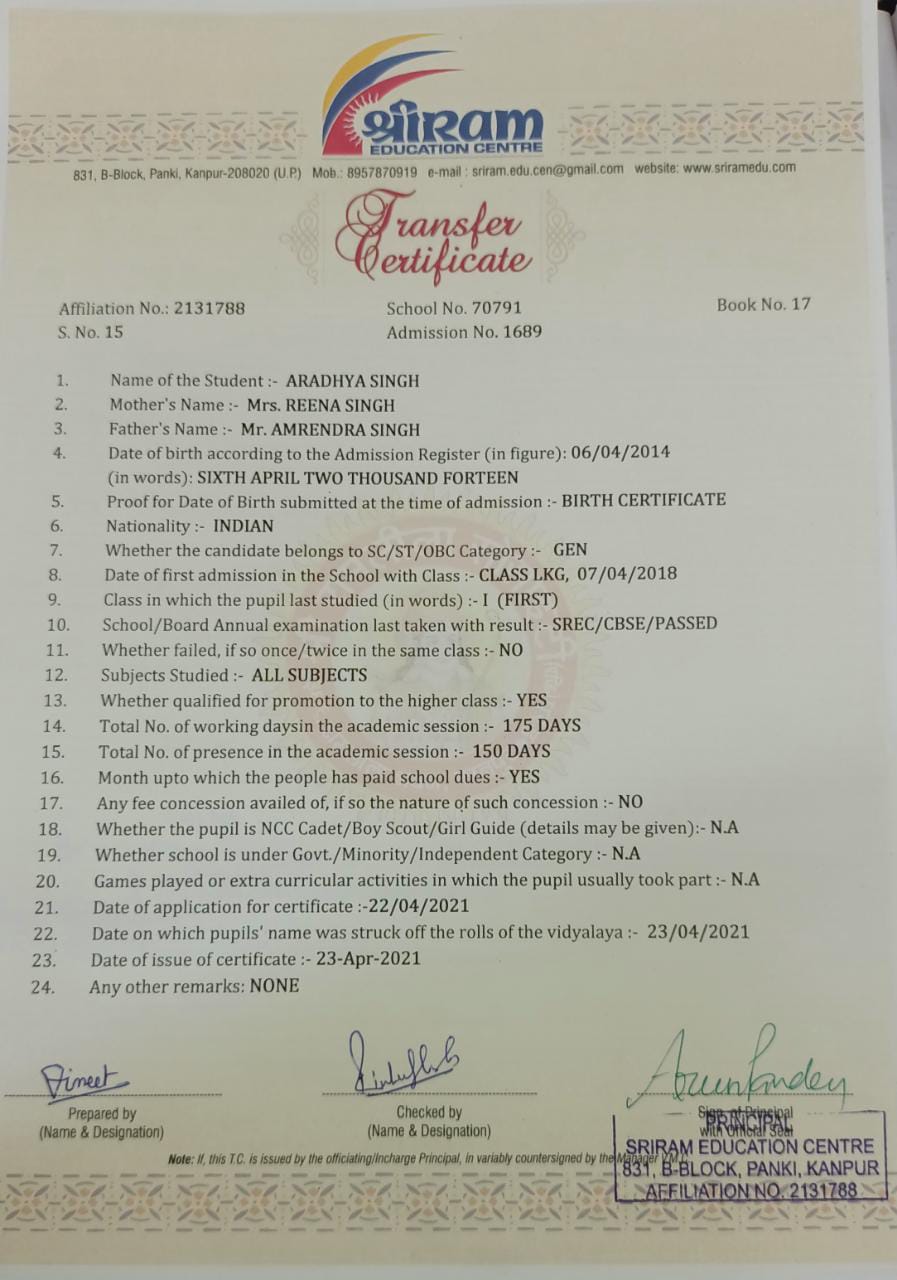 श्रीराम
EDUCATION CENTRE
831, B-Block, Panki, Kanpur-208020 (U.P.) Mob.: 8957870919 e-mail : sriram.edu.cen@gmail.com website: www.sriramedu.com
Transfer
Certificate
Affiliation No.: 2131788 School No. 70791 Book No. 17
S. No. 15 Admission No. 1689
1. Name of the Student :- ARADHYA SINGH
2. Mother's Name :- Mrs. REENA SINGH
3. Father's Name :- Mr. AMRENDRA SINGH
4. Date of birth according to the Admission Register (in figure): 06/04/2014
(in words): SIXTH APRIL TWO THOUSAND FORTEEN
5. Proof for Date of Birth submitted at the time of admission :- BIRTH CERTIFICATE
6. Nationality :- INDIAN
7. Whether the candidate belongs to SC/ST/OBC Category :- GEN
8. Date of first admission in the School with Class :- CLASS LKG, 07/04/2018
9. Class in which the pupil last studied (in words) :- I (FIRST)
10. School/Board Annual examination last taken with result :- SREC/CBSE/PASSED
11. Whether failed, if so once/twice in the same class :- NO
12. Subjects Studied :- ALL SUBJECTS
13. Whether qualified for promotion to the higher class :- YES
14. Total No. of working daysin the academic session :- 175 DAYS
15. Total No. of presence in the academic session :- 150 DAYS
16. Month upto which the people has paid school dues :- YES
17. Any fee concession availed of, if so the nature of such concession :- NO
18. Whether the pupil is NCC Cadet/Boy Scout/Girl Guide (details may be given):- N.A
19. Whether school is under Govt./Minority/Independent Category :- N.A
20. Games played or extra curricular activities in which the pupil usually took part :- N.A
21. Date of application for certificate :-22/04/2021
22. Date on which pupils' name was struck off the rolls of the vidyalaya :- 23/04/2021
23. Date of issue of certificate :- 23-Apr-2021
24. Any other remarks: NONE
Vineet Arun Pandey
Prepared by Checked by Sign. of Principal
(Name & Designation) (Name & Designation) with Official Seal
PRINCIPAL
SRIRAM EDUCATION CENTRE
831, B-BLOCK, PANKI, KANPUR
AFFILIATION NO. 2131788
Note: If, this T.C. is issued by the officiating/Incharge Principal, in variably countersigned by the Manager